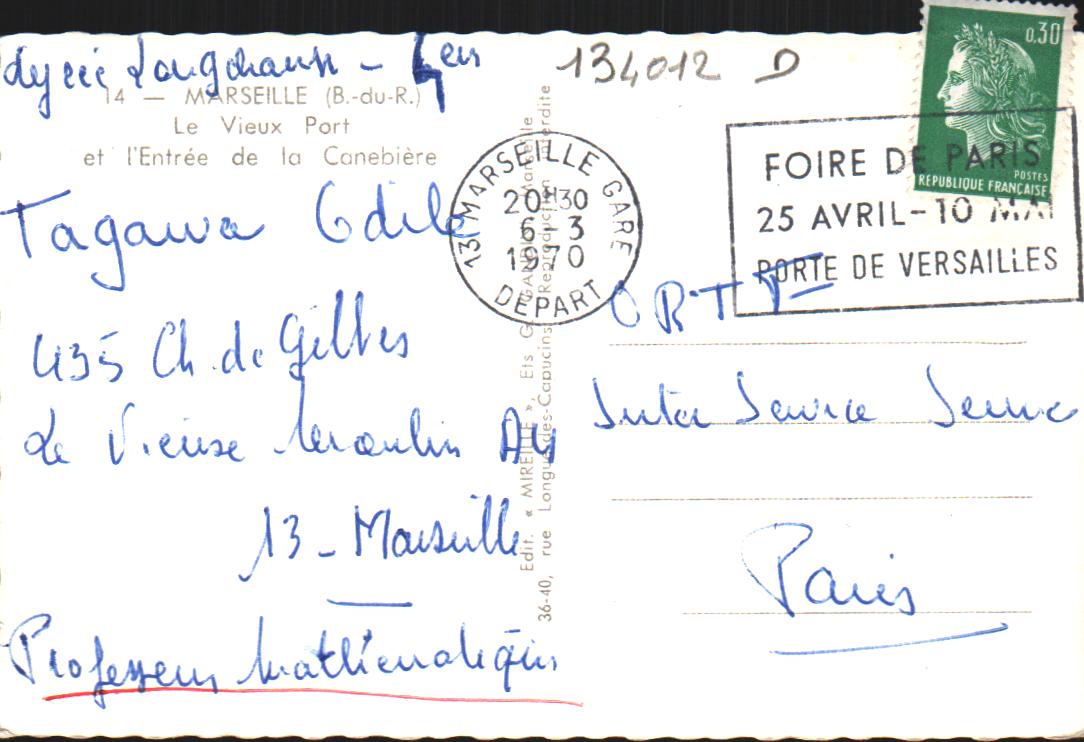 Lycée Longchamp -
134012 D
14 — MARSEILLE (B.-du-R.)
Le Vieux Port
et l'Entrée de la Canebière
Tagawa Odile
435 Ch. de Gilbes
Le Vieux Moulin A4
13 - Marseille
Professeur Mathématiques
Edit. « MIREILLE », Ets GANDINI, Marseille
36-40, rue Longue-des-Capucins Reproduction interdite
13 MARSEILLE GARE
20H30
6 - 3
1970
DEPART
0,30
POSTES
REPUBLIQUE FRANÇAISE
FOIRE DE PARIS
25 AVRIL - 10 MAI
PORTE DE VERSAILLES
O R T F
Inter Service Jeune
Paris